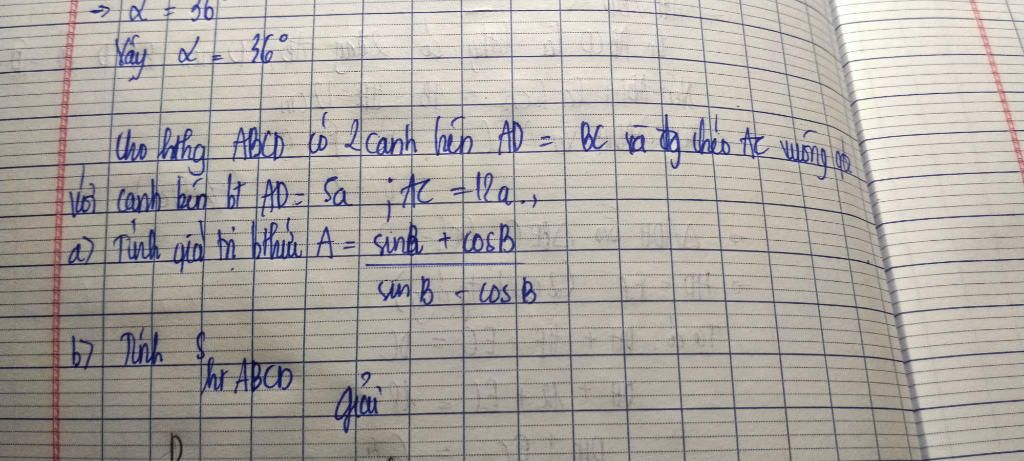 → α = 36
Vậy α = 36°
Cho hthg ABCD có 2 cạnh bên AD = BC và đg chéo AC vuông góc
với cạnh bên bt AD = 5a ; AC = 12a.,
a) Tính giá trị bthức A = sinB + cosB
sin B - cos B
b) Tính S
ht ABCD
Giải
D